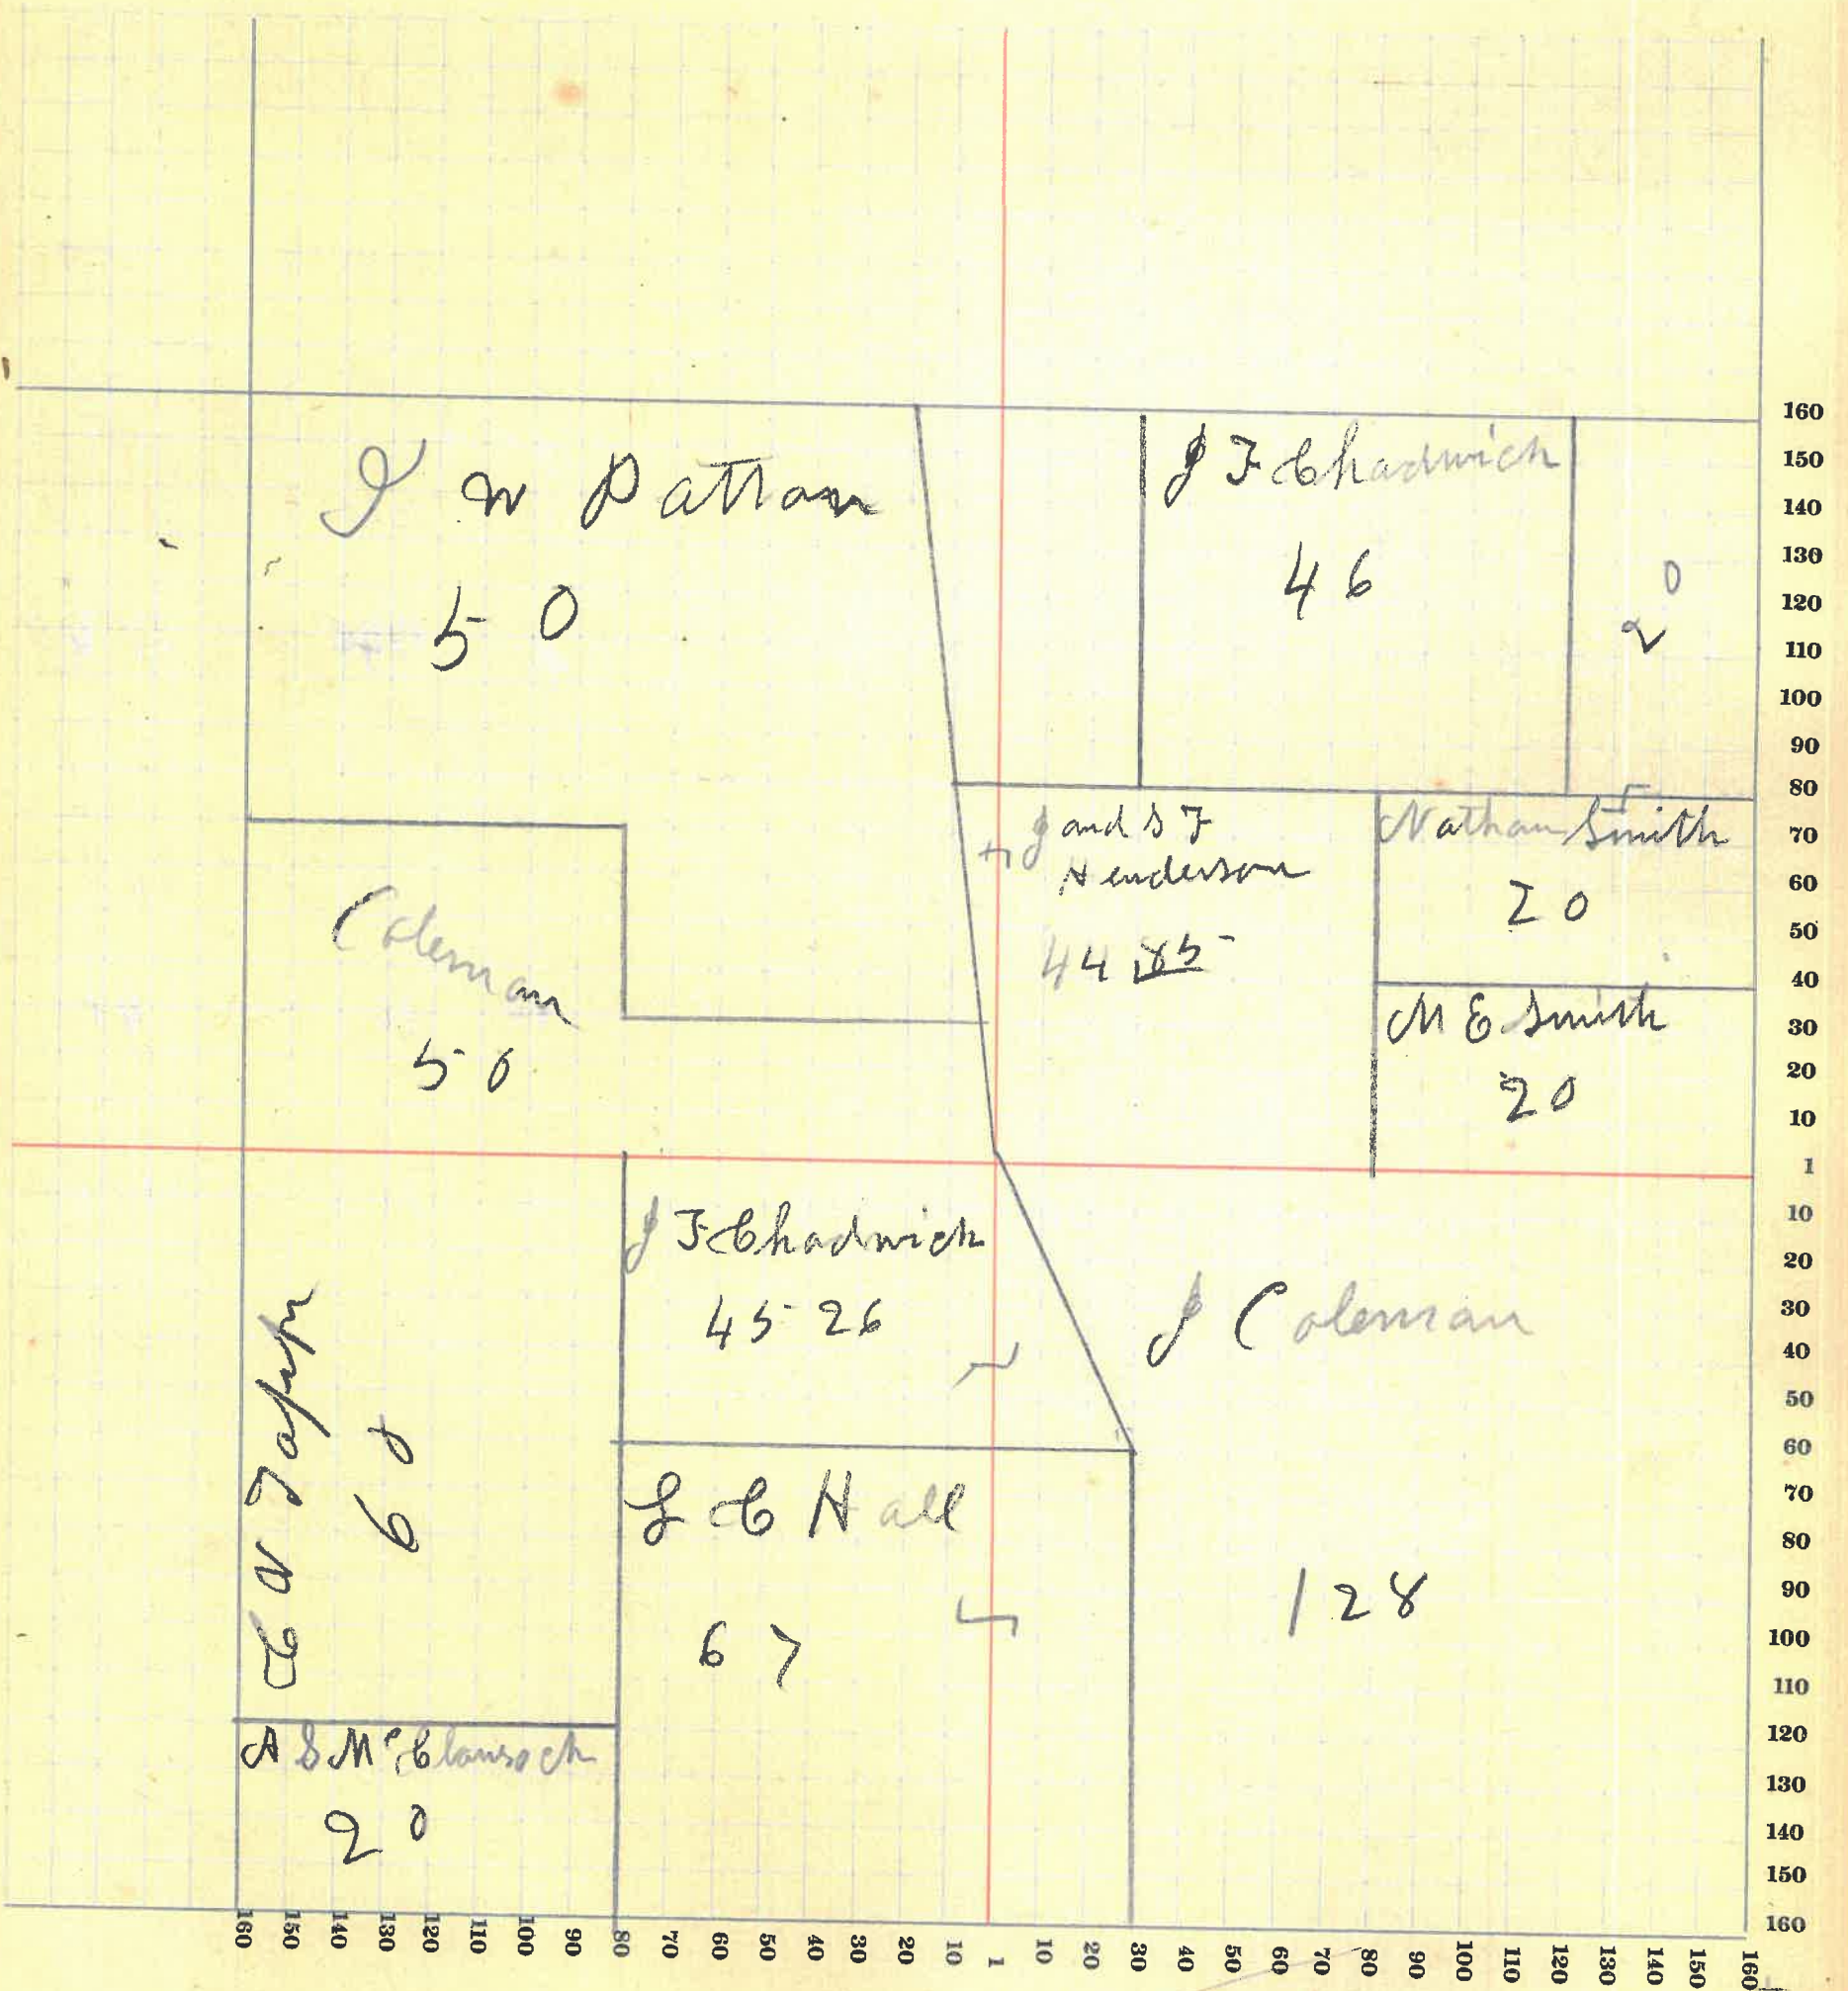 J W Patton
50
J F Chadwich
46
20
J and S F
Henderson
44 85
Nathan Smith
20
M E Smith
20
Coleman
50
J F Chadwich
45 26
J Coleman
128
L C Hall
67
60
A S
20
160
150
140
130
120
110
100
90
80
70
60
50
40
30
20
10
1
10
20
30
40
50
60
70
80
90
100
110
120
130
140
150
160
160 150 140 130 120 110 100 90 80 70 60 50 40 30 20 10 1 10 20 30 40 50 60 70 80 90 100 110 120 130 140 150 160